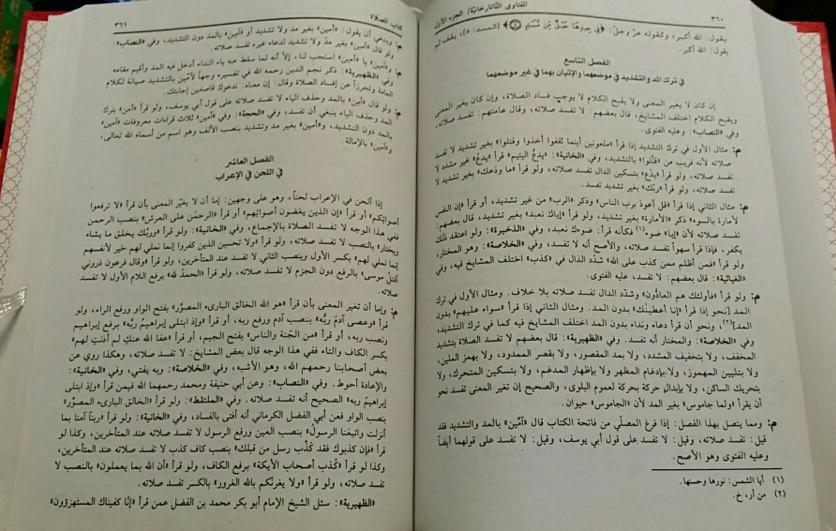 ٣٦٠ الفتاوى التاتارخانيّة/ الجزء الأول
يقول: الله أكبر، وكقوله عزّ وجلّ: ﴿فِي جِيدِهَا حَبْلٌ مِّن مَّسَدٍ﴾ [المسد: ٥]، يقف ثم
يقول: الله أكبر.
الفصل التاسع
في ترك المد والتشديد في موضعهما والإتيان بهما في غير موضعهما
إن كان لا يغير المعنى ولا يقبح الكلام لا يوجب فساد الصلاة، وإن كان يغير المعنى
ويقبح الكلام اختلف المشايخ، قال بعضهم: لا تفسد صلاته، وقال عامتهم: تفسد صلاته.
وفي «النصاب»: وعليه الفتوى.
م: مثال الأول في ترك التشديد إذا قرأ «ملعونين أينما ثقفوا أخذوا وقتلوا» بغير تشديد لا تفسد
صلاته لأنه قريب من «قتّلوا» بالتشديد، وفي «الخانية»: «يدعُّ اليتيم» قرأ «يدعُ» غير مشدد لا
تفسد صلاته، ولو قرأ «يدْع» بتسكين الدال تفسد صلاته، ولو قرأ «ما ودعك» بغير تشديد لا
تفسد صلاته، ولو قرأ «ربُك» بغير تشديد تفسد.
م: مثال الثاني إذا قرأ «قل أعوذ برب الناس» وذكر «الرب» من غير تشديد، أو قرأ «إن النفس
لأمارة بالسوء» ذكر «الأمارة» بغير تشديد، ولو قرأ «إياك نعبد» بغير تشديد، قال بعضهم:
تفسد صلاته لأن «إيا» ضوء(١) فكأنه قرأ: ضوءك نعبد، وفي «الذخيرة»: ولو اعتقد ذلك
يكفر، فإذا قرأ سهواً تفسد صلاته، والأصح أنه لا تفسد، وفي «الخلاصة»: وهو المختار،
ولو قرأ «فمن أظلم ممن كذب على الله» شدّد الذال في «كذب» اختلف المشايخ فيه، وفي
«الغياثية»: قال بعضهم: لا تفسد، عليه الفتوى.
م: ولو قرأ «فأولئك هم العادُون» وشدّد الدال تفسد صلاته بلا خلاف. ومثال الأول في ترك
المد [نحو إذا قرأ «إنا أعطينٰك» بدون المد. ومثال الثاني إذا قرأ «سواء عليهم» بدون
المد](٢)، ونحو أن قرأ دعاء ونداء بدون المد اختلف المشايخ فيه كما في ترك التشديد،
وفي «الخلاصة»: والمختار أنه تفسد. وفي «الظهيرية»: قال بعضهم لا تفسد الصلاة بتشديد
المخفف، ولا بتخفيف المشدد، ولا بمد المقصور، ولا بقصر الممدود، ولا بهمز الملين،
ولا بتليين المهموز، ولا بإدغام المظهر ولا بإظهار المدغم، ولا بتسكين المتحرك، ولا
بتحريك الساكن، ولا بإبدال حركة بحركة لعموم البلوى، والصحيح إن تغير المعنى تفسد نحو
أن يقرأ «ولما جاموس» بغير المد لأن «الجاموس» حيوان.
م: ومما يتصل بهذا الفصل: إذا فرغ المصلّي من فاتحة الكتاب قال «آمّين» بالمد والتشديد فقد
قيل: تفسد صلاته، وقيل: لا تفسد على قول أبي يوسف، وقيل: لا تفسد على قولهما أيضاً
وعليه الفتوى وهو الأصح.
(١) أيا الشمس: نورها وحسنها.
(٢) من أر، خ.
كتاب الصلاة ٣٦١
م: وينبغي أن يقول: «أمين» بغير مد ولا تشديد أو «آمين» بالمد دون التشديد، وفي «النصاب»:
ولو قال «أمّين» بغير مدّ ولا تشديد لدعاء غيره تفسد صلاته.
م: و«آمين» يا «أمين» استجب لنا، إلاّ أنه لما سقط عنه ياء النداء أدخل فيه المد وأقيم مقامه.
وفي «الظهيرية»: ذكر نجم الدين رحمه الله في تفسيره وجهاً لآمّين بالتشديد صيانة لكلام
العامة وتحرزاً عن إفساد الصلاة وقال: إن معناه: ندعوك قاصدين إجابتك.
م: ولو قال «آمن» بالمد وحذف الياء لا تفسد صلاته على قول أبي يوسف، ولو قرأ «أمن» بترك
المد وحذف الياء ينبغي أن تفسد، وفي «الحجة»: وفي «آمين» ثلاث قراءات معروفات «آمين»
بالمد دون التشديد، و«أمين» بغير مد وتشديد بنصب الألف وهو اسم من أسماء الله تعالى،
و«آمين» بالإمالة.
الفصل العاشر
في اللحن في الإعراب
إذا لحن في الإعراب لحناً، وهو على وجهين: إما أن لا يغيّر المعنى بأن قرأ «لا ترفعوا
أصواتِكم» أو قرأ «إن الذين يغضون أصواتِهم» أو قرأ «الرحمٰنَ على العرش» بنصب الرحمن
ففي هذا الوجه لا تفسد الصلاة بالإجماع، وفي «الخانية»: ولو قرأ «وربَّك يخلق ما يشاء
ويختار» بالنصب لا تفسد صلاته، ولو قرأ «ولا تحسبن الذين كفروا إنما نملي لهم خير لأنفسهم
إنما نملي لهم» بكسر الأول وبنصب الثاني لا تفسد عند المتأخرين، ولو قرأ «وقال فرعون ذروني
أقتلُ موسى» بالرفع دون الجزم لا تفسد صلاته، ولو قرأ «الحمدُ لُله» برفع اللام الأول لا تفسد
صلاته.
م: وإما أن تغير المعنى بأن قرأ «هو الله الخالق البارىء المصوَّر» بفتح الواو ورفع الراء، ولو
قرأ «وعصى آدمَ ربُّه» بنصب آدم ورفع ربه، أو قرأ «وإذ ابتلى إبراهيمُ ربَّه» برفع إبراهيم
ونصب ربه، أو قرأ «من الجَنة والناس» بفتح الجيم، أو قرأ «عفا الله عنكِ لم أذنتِ لهم»
بكسر الكاف والتاء ففي هذا الوجه قال بعض المشايخ: لا تفسد صلاته، وهكذا روي عن
بعض أصحابنا رحمهم الله، وهو الأشبه، وفي «الخلاصة»: وبه يفتى، وفي «الخانية»:
والإعادة أحوط. وفي «النصاب»: وعن أبي حنيفة ومحمد رحمهما الله فيمن قرأ «وإذ ابتلى
إبراهيمُ ربه» الصحيح أنه تفسد صلاته. وفي «الملتقط»: ولو قرأ «الخالق البارىء المصوَّر»
بنصب الواو فعن أبي الفضل الكرماني أنه أفتى بالفساد، وفي «الخانية»: ولو قرأ «ربنا آمنا بما
أنزلت واتبعَنا الرسولُ» بنصب العين ورفع الرسول لا تفسد صلاته عند المتأخرين، وكذا لو
قرأ «فإن كذبوك فقد كَذّب رسل من قبلك» بنصب كاف كذب لا تفسد صلاته عند المتأخرين،
وكذا لو قرأ «كُذّب أصحاب الأيكة» برفع الكاف، ولو قرأ «أن الله بما يعملون» بالنصب لا
تفسد صلاته، ولو قرأ «ولا يغرنّكم بالله الغرور» بالكسر تفسد صلاته.
«الظهيرية»: سئل الشيخ الإمام أبو بكر محمد بن الفضل عمن قرأ «إنّا كفيناك المستهزؤون»